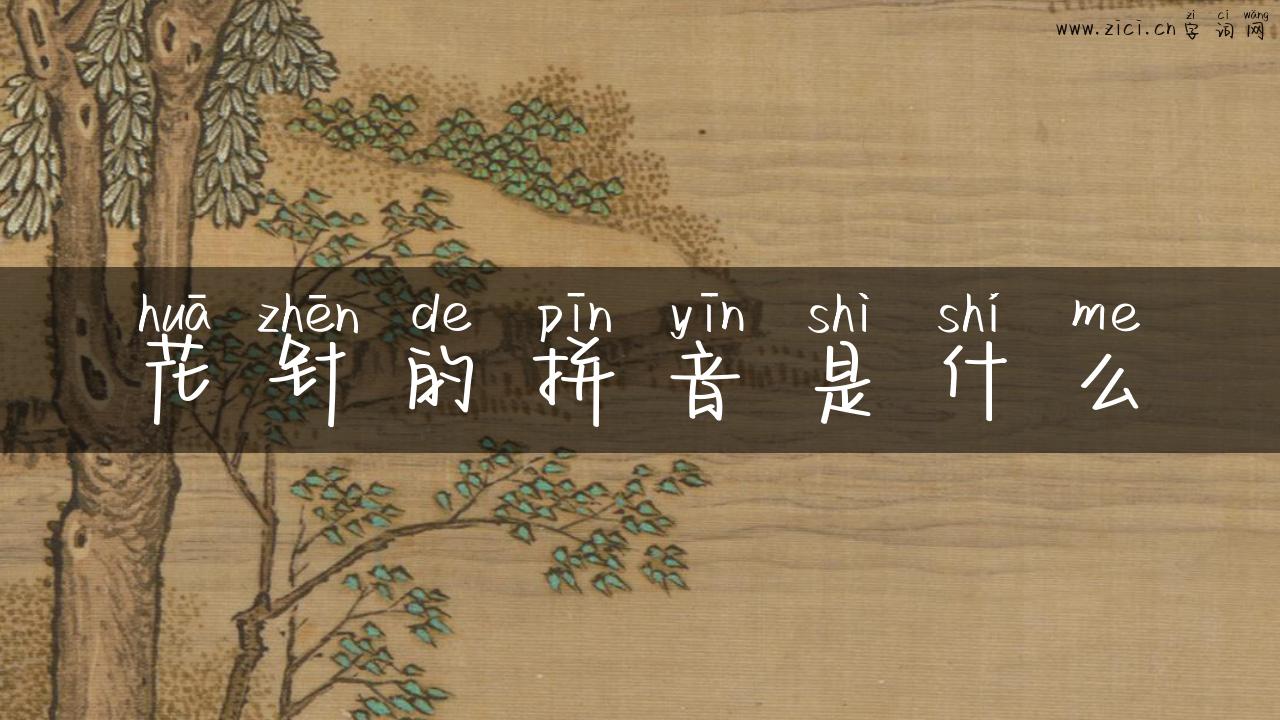 zì cí wǎng
www.zici.cn 字词网
huā zhēn de pīn yīn shì shí me
花针的拼音是什么